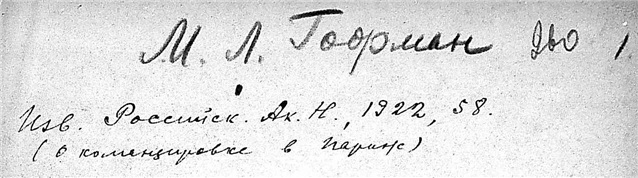 М. Л. Гофман 1.
Изв. Российск. Ак. Н., 1922, 58.
(О командировке в Париж)